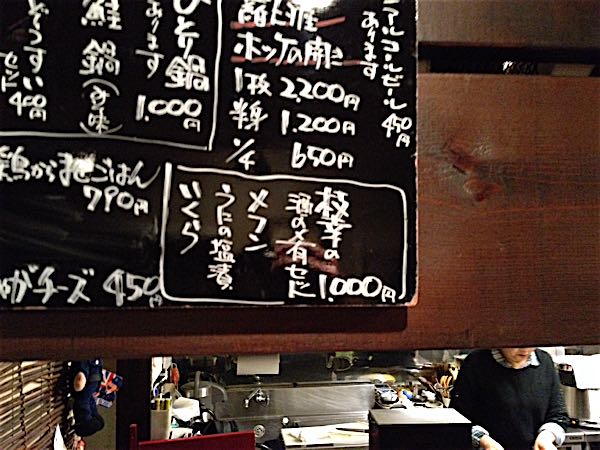 ノンアルコールビール
あります
450円
ホッケの開き
1枚 2,200円
半身 1,200円
1/4 650円
ひとり鍋
あります
1,000円
鮭鍋(みそ味)
ぞうすい
セット
400円
枝幸の
酒の肴セット
1,000円
メフン
うにの塩漬
いくら
ごはん
790円
チーズ 450円